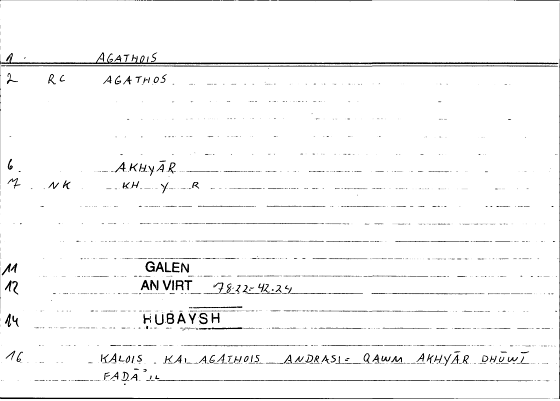 1. AGATHOIS
2 RC AGATHOS
6. AKHYĀR
7 NK KH Y R
11 GALEN
12 AN VIRT 78.22=42.24
14 ḤUBAYSH
16 KALOIS KAI AGATHOIS ANDRASI = QAWM AKHYĀR DHŪWĪ
FAḌĀʾIL